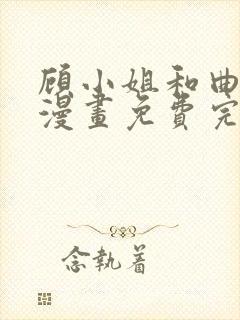 顾小姐和曲
漫畫免費完
念執着